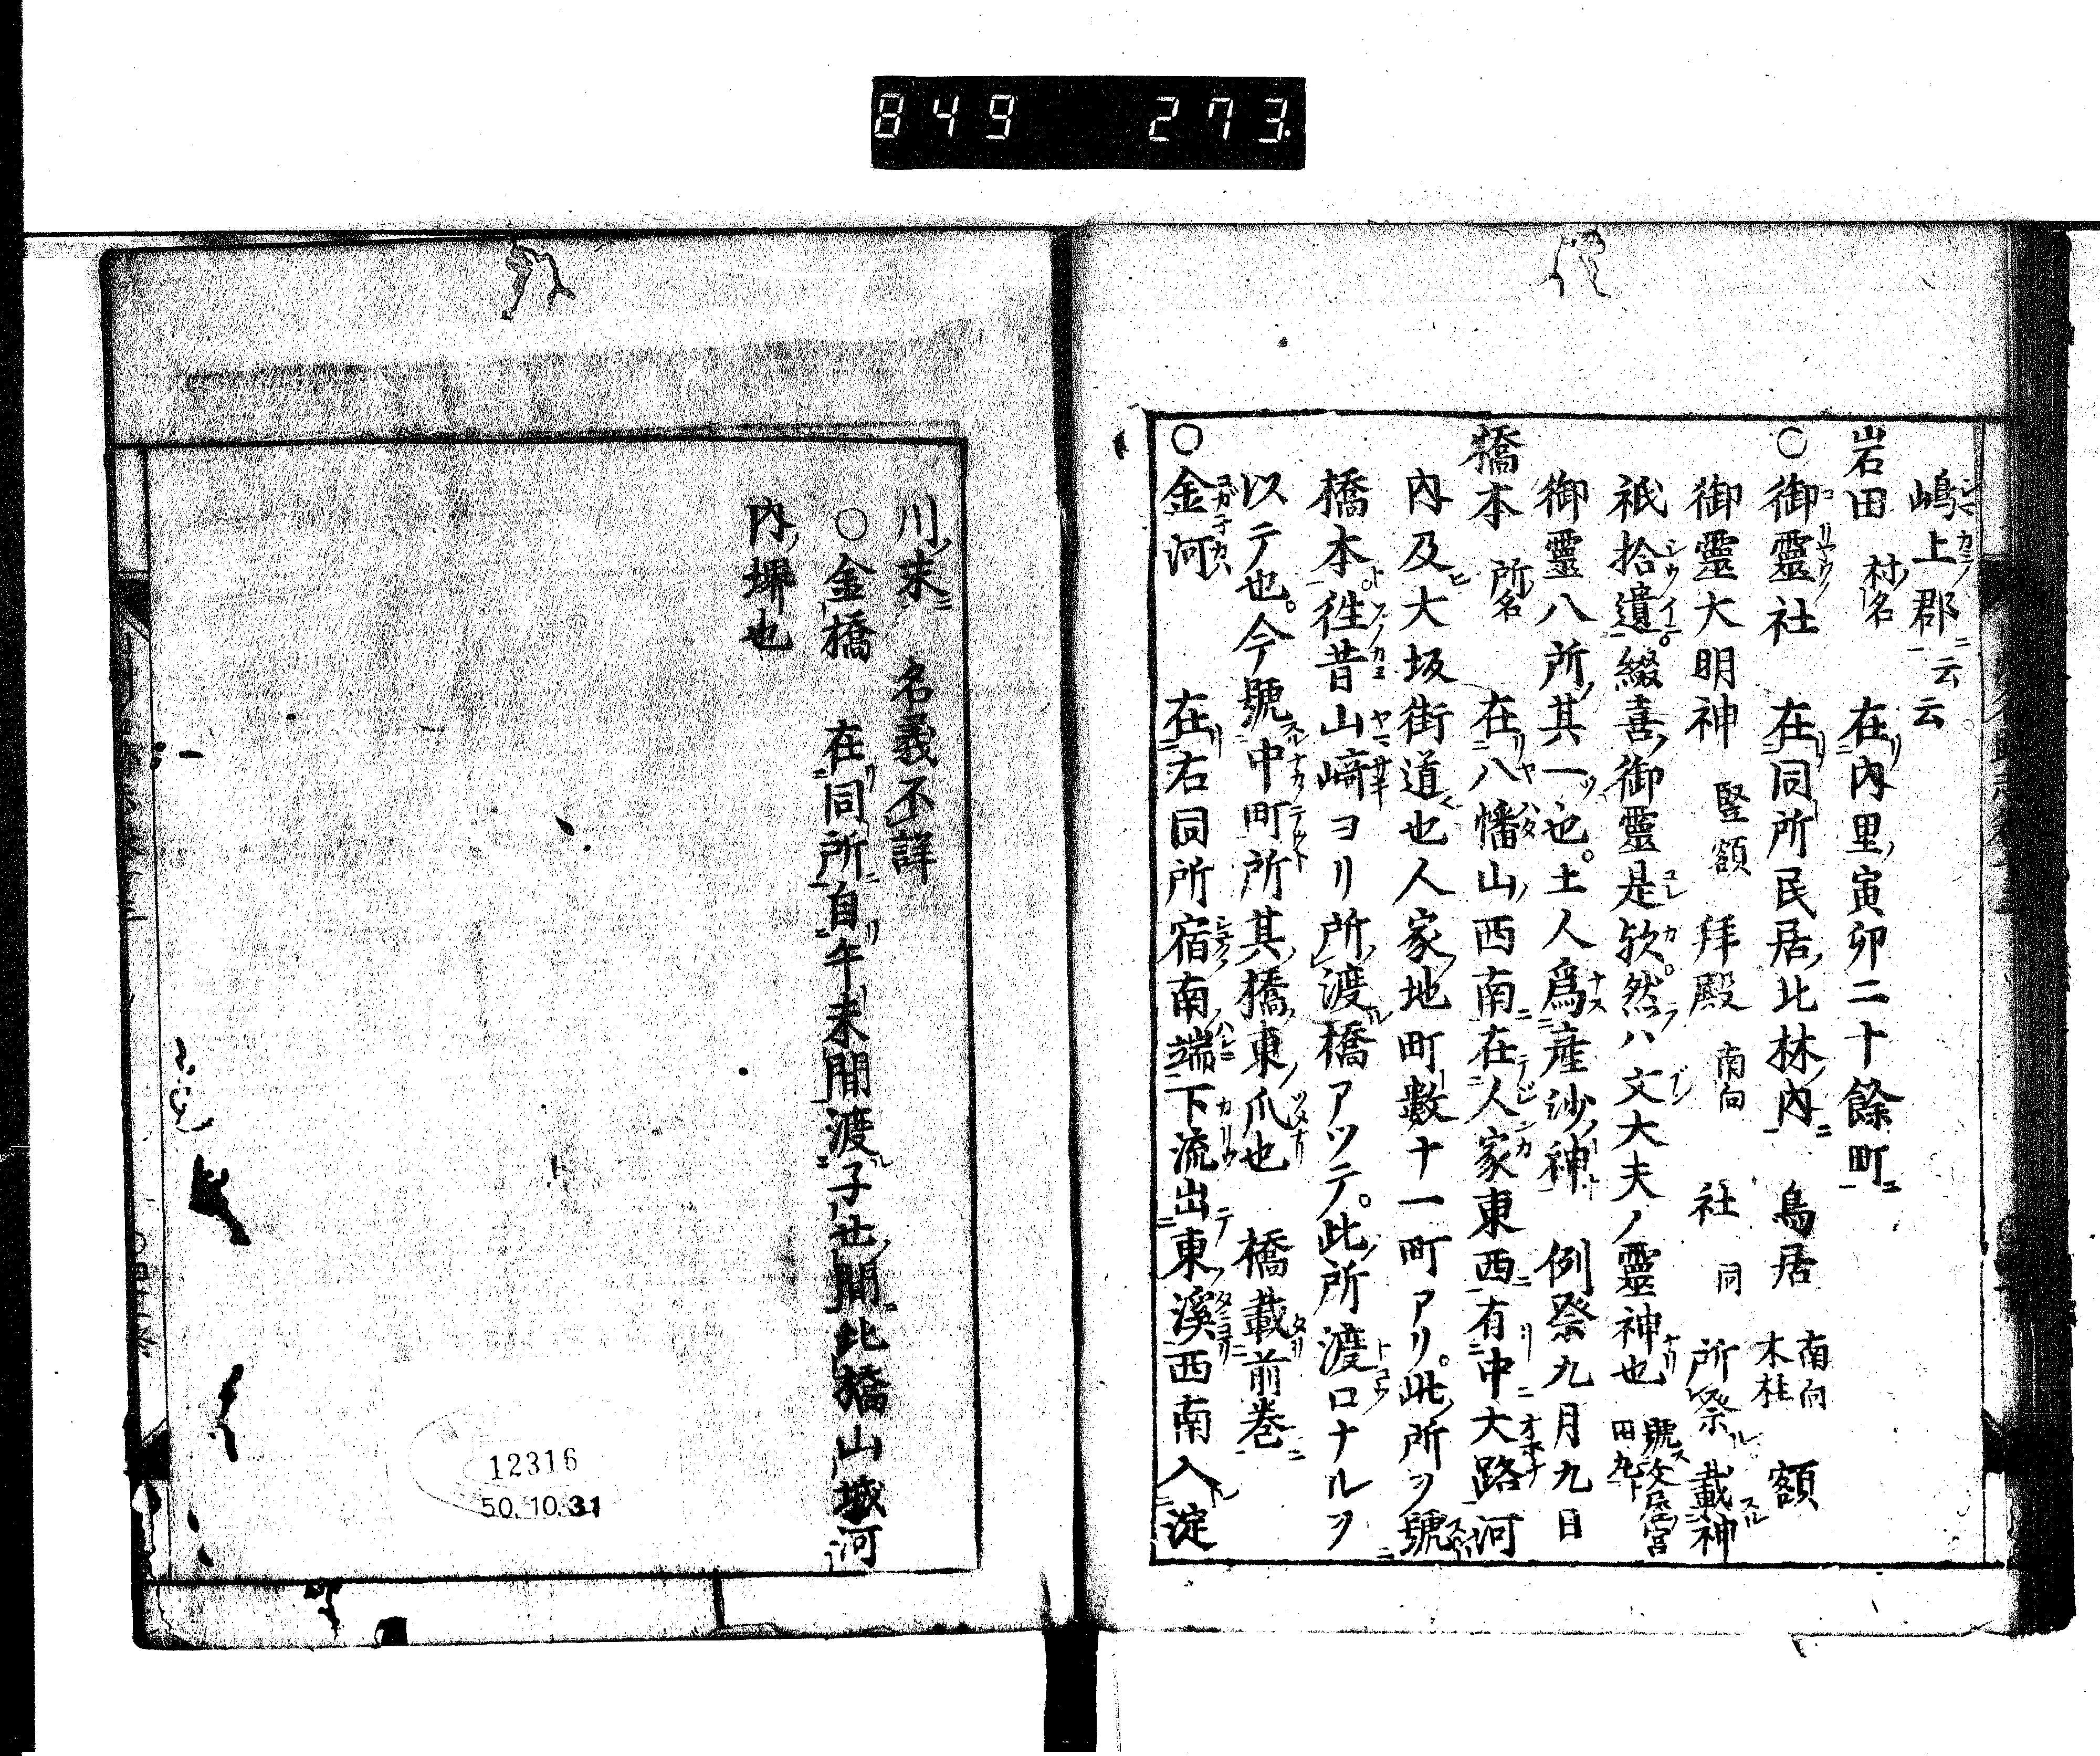 849 273.
嶋上郡云云
岩田 村名 在内里寅卯二十餘町
○御靈社 在同所民居北林内 鳥居 南向 木柱 額
御靈大明神 竪額 拜殿 南向 社 同 所祭載神
祇拾遺綴喜御靈是欤然ハ文大夫ノ靈神也 號文屋宮
御靈八所其一也土人爲產沙神 例祭九月九日
橋本 所名 在八幡山西南在人家東西有中大路河
内及大坂街道也人家地町數十一町アリ此所ヲ號
橋本往昔山﨑ヨリ所渡橋アツテ此所渡口ナルヲ
以テ也今號中町所其橋東爪也 橋載前巻
○金河 在右同所宿南端下流出東溪西南入淀
川末 名義不詳
○金橋 在同所自午未間渡子丑間此橋山城河
内堺也
12316
50.10.31